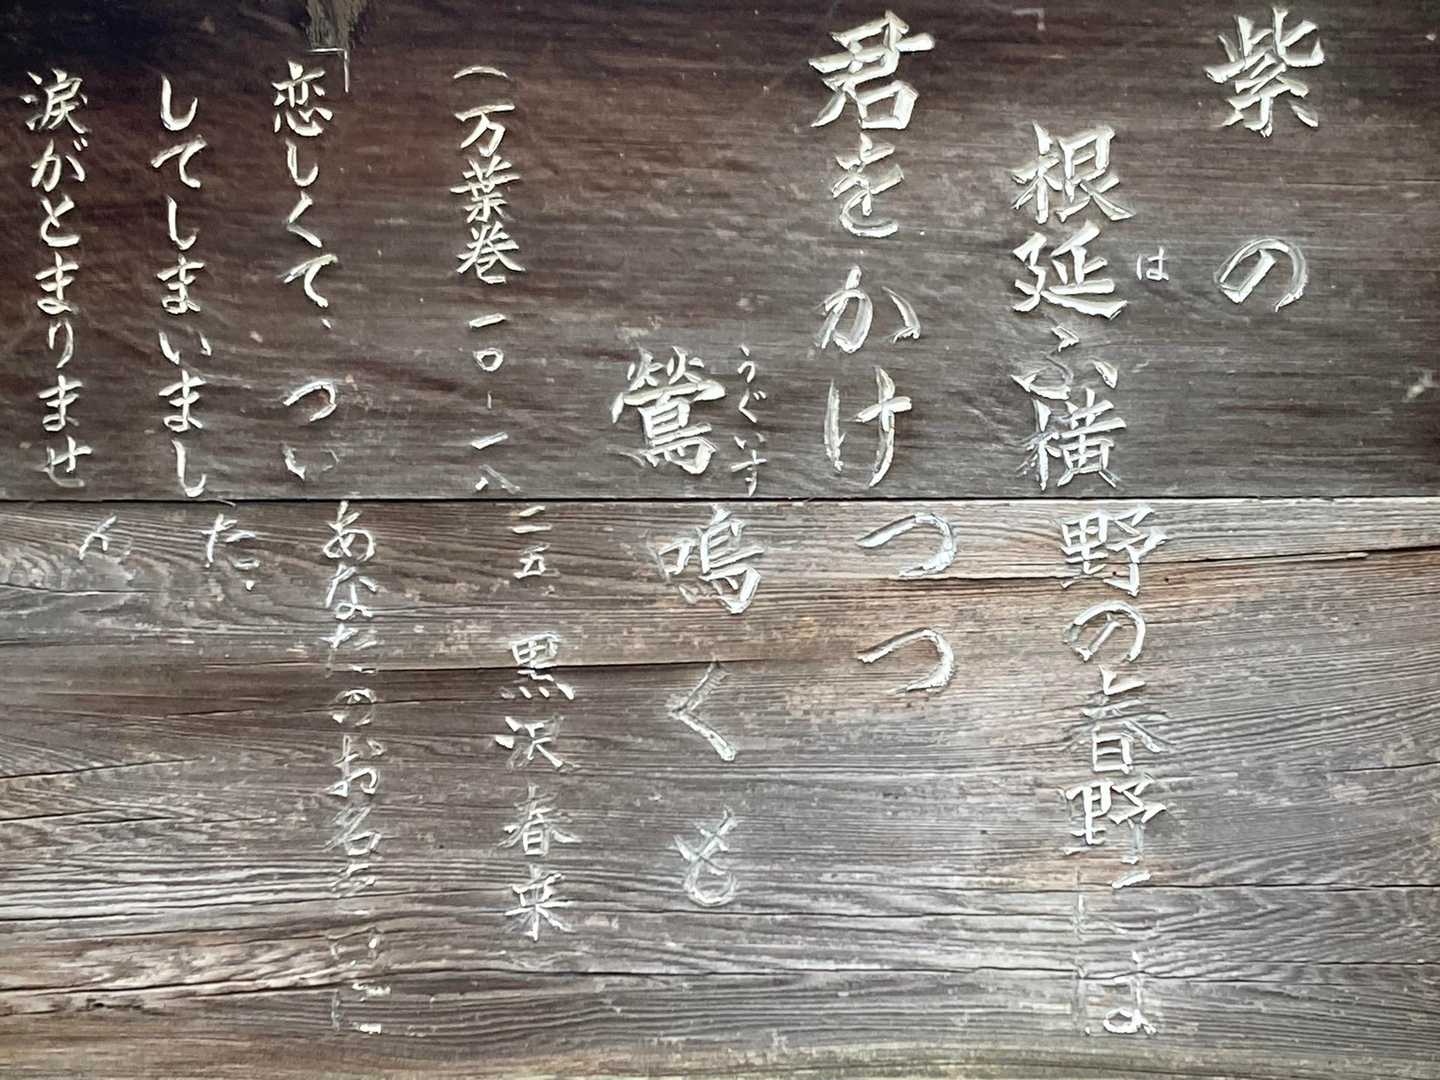 紫の
は
根延ふ横野の春野には
君をかけつつ
うぐいす
鶯鳴くも
(万葉巻一〇-一八二五 黒沢春来
「恋しくて、ついあなたのお名を口に
してしまいました、
涙がとまりません